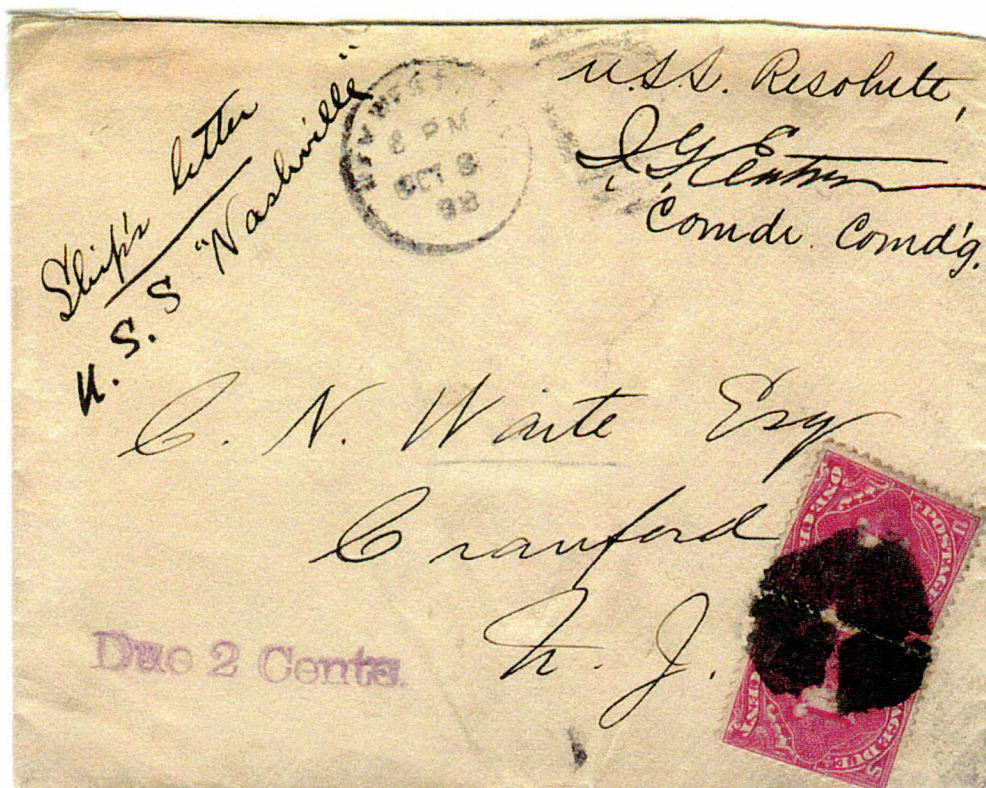 Ship's letter
U.S.S "Nashville"
KEY WEST
8 PM
OCT 8
98
U.S.S. Resolute,
J. G. Eaton
Comdr. Comd'g.
C. N. Waite Esq
Cranford
N. J.
Due 2 Cents.
POSTAGE DUE
ONE CENT